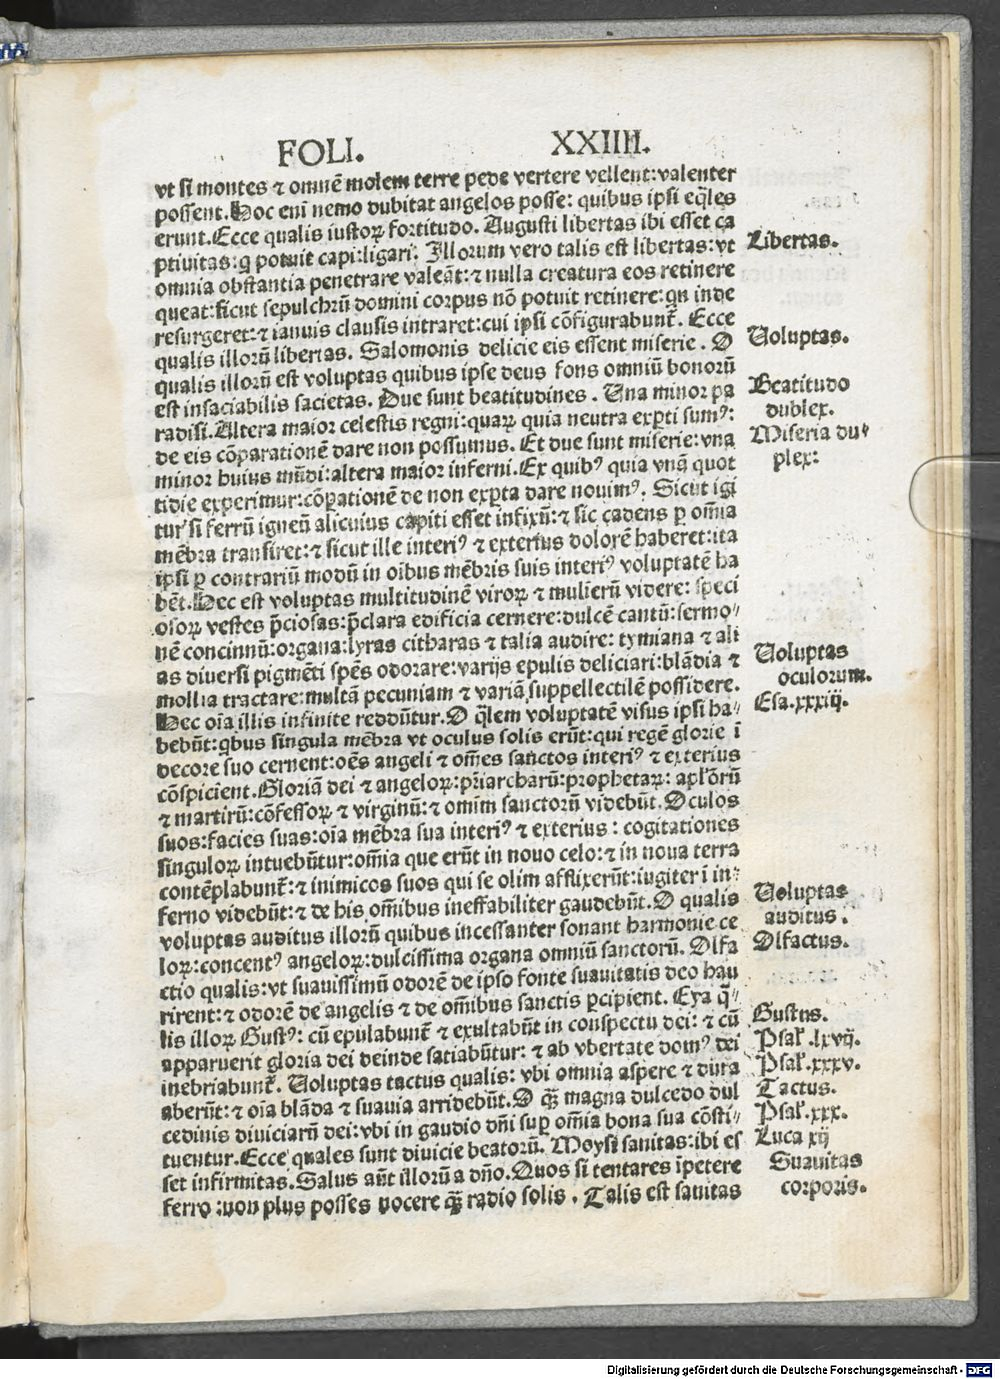 FOLI. XXIIII.
vt si montes ⁊ omnē molem terre pede vertere vellent:valenter
possent.Hoc eni nemo dubitat angelos posse: quibus ipsi eq̄les
erunt.Ecce qualis iustoꝝ fortitudo. Augusti libertas ibi esset ca
ptiuitas:q potuit capi:ligari. Illorum vero talis est libertas:vt
omnia obstantia penetrare valeāt:⁊ nulla creatura eos retinere
queat:sicut sepulchrū domini corpus nō potuit retinere:qn inde
resurgeret:⁊ ianuis clausis intraret:cui ipsi cōfigurabunt̄. Ecce
qualis illorū libertas. Salomonis delicie eis essent miserie. O
qualis illorū est voluptas quibus ipse deus fons omniū bonorū
est insaciabilis sacietas. Due sunt beatitudines. Una minor pa
radisi.Altera maior celestis regni:quaꝝ quia neutra exꝑti sumꝰ:
de eis cōparationē dare non possumus. Et due sunt miserie:vna
minor huius mūdi:altera maior inferni.Ex quibꝰ quia vnā quot
tidie experimur:cōꝑationē de non exꝑta dare nouimꝰ. Sicut igi
tur si ferrū igneū alicuius capiti esset infixū:⁊ sic cadens ꝑ om̄ia
mēbra transiret:⁊ sicut ille interiꝰ ⁊ exterius dolorē haberet:ita
ipsi ꝑ contrariū modū in oībus mēbris suis interiꝰ voluptatē ha
bēt.Hec est voluptas multitudinē viroꝝ ⁊ mulierū videre: speci
osoꝝ vestes p̄ciosas:p̄clara edificia cernere:dulcē cantū:sermo-
nē concinnū:organa:lyras citharas ⁊ talia audire: tymiana ⁊ ali
as diuersi pigmēti spēs odorare:varijs epulis deliciari:blādia ⁊
mollia tractare:multā pecuniam ⁊ variā suppellectilē possidere.
Hec oīa illis infinite reddūtur.O q̄lem voluptatē visus ipsi ha-
bebūt:qbus singula mēbra vt oculus solis erūt:qui regē glorie ī
decore suo cernent:oēs angeli ⁊ om̄es sanctos interiꝰ ⁊ exterius
cōspicient.Gloriā dei ⁊ angeloꝝ:pr̄iarcharū:prophetaꝝ: apl'orū
⁊ martirū:cōfessoꝝ ⁊ virginū:⁊ omīm sanctorū videbūt.Oculos
suos:facies suas:oīa mēbra sua interiꝰ ⁊ exterius: cogitationes
singuloꝝ intuebūtur:om̄ia que erūt in nouo celo:⁊ in noua terra
contēplabunt̄:⁊ inimicos suos qui se olim afflixerūt:iugiter ī in-
ferno videbūt:⁊ de his om̄ibus ineffabiliter gaudebūt.O qualis
voluptas auditus illorū quibus incessanter sonant harmonie ce
loꝝ:concentꝰ angeloꝝ:dulcissima organa omniū sanctorū. Olfa
ctio qualis:vt suauissimū odorē de ipso fonte suauitatis deo hau
rirent:⁊ odorē de angelis ⁊ de om̄ibus sanctis ꝑcipient. Eya q̄-
lis illoꝝ Gustꝰ: cū epulabunt̄ ⁊ exultabūt in conspectu dei: ⁊ cū
apparuerit gloria dei deinde satiabūtur: ⁊ ab vbertate domꝰ dei
inebriabunt̄. Uoluptas tactus qualis: vbi omnia aspere ⁊ dura
aberūt:⁊ oīa blāda ⁊ suauia arridebūt.O qȝ magna dulcedo dul
cedinis diuiciarū dei:vbi in gaudio dn̄i suꝑ om̄ia bona sua cōsti-
tuentur.Ecce quales sunt diuicie beatorū. Moysi sanitas:ibi es
set infirmitas.Salus aūt illorū a dn̄o.Quos si tentares īpetere
ferro:non plus posses nocere qȝ radio solis. Talis est sanitas
Libertas.
Uoluptas.
Beatitudo
dublex.
Miseria du-
plex:
Uoluptas
oculorum.
Esa.xxxiij.
Uoluptas
auditus.
Olfactus.
Gustus.
Psal'.lxvij.
Psal'.xxxv.
Tactus.
Psal'.xxx.
Luca xij
Suauitas
corporis.
Digitalisierung gefördert durch die Deutsche Forschungsgemeinschaft - DFG